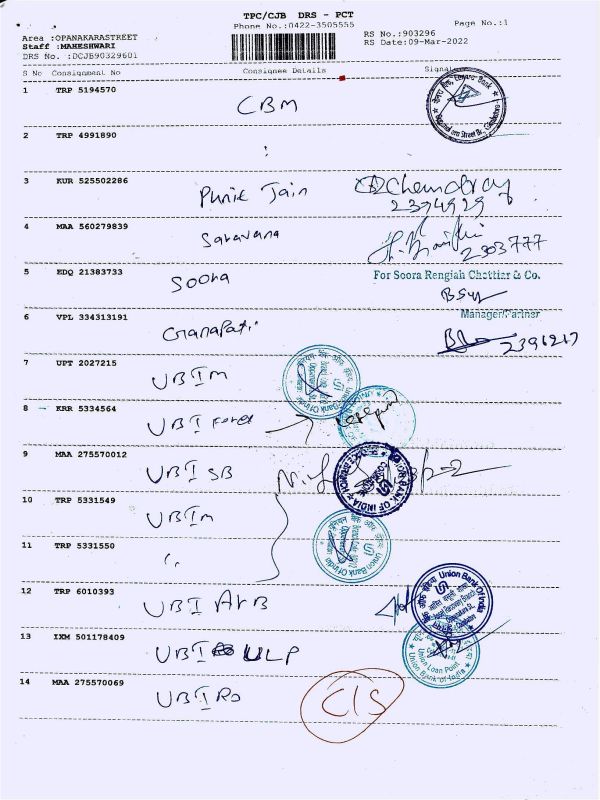 TPC/CJB DRS - PCT
Phone No.:0422-3505555
Page No.:1
Area :OPANAKARASTREET
Staff :MAHESHWARI
DRS No. :DCJB90329601
RS No.:903296
RS Date:09-Mar-2022
S No Consignment No Consignee Details Signat
1 TRP 5194570 CBM
2 TRP 4991890
3 KUR 525502286 Punit Jain 2394929
4 MAA 560279839 Saravana 2303777
5 EDQ 21383733 Soora For Soora Rengiah Chettiar & Co.
Manager/Partner
6 VPL 334313191 Ganapati 2396217
7 UPT 2027215 UBI m
8 KRR 5334564 UBI Forex
9 MAA 275570012 UBI SB
10 TRP 5331549 UBI m
11 TRP 5331550 "
12 TRP 6010393 UBI ARB
Union Bank Of India
13 IXM 501178409 UBI ULP
Union Loan Point
Union Bank of India
14 MAA 275570069 UBI RO CIS